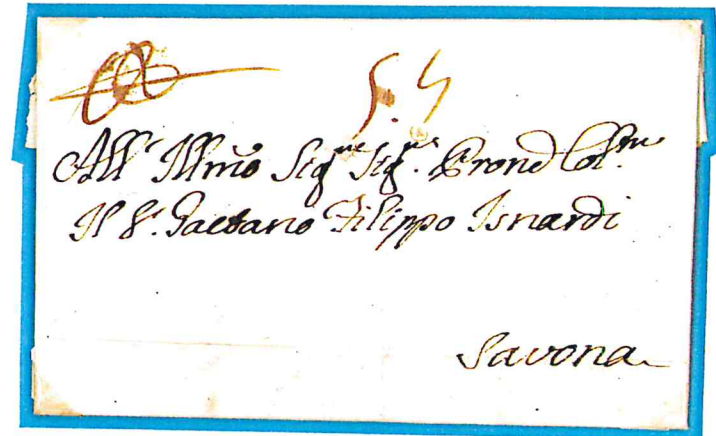 5.4
All' Illmo Sigre Sigr. Prone Colmo
Il Sr. Gaetano Filippo Isnardi
Savona